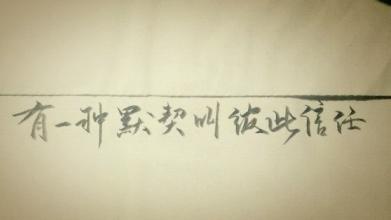 有一种默契叫彼此信任